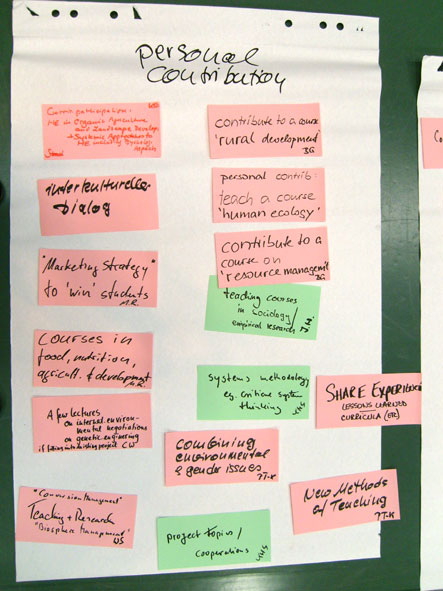 personal
contribution
participation:
MSc in Organic Agriculture
and Landscape Develop.
Systemic Approaches to
contribute to a course
'rural development'
BG
interkultureller
Dialog
personal contrib:
teach a course
'human ecology'
"Marketing Strategy"
to 'win' students
M.R.
contribute to a
course on
'resource managemt'
BG
teaching courses
in Sociology/
empirical research
J.N.
Courses in
food, nutrition,
agricult. & development
M.R.
systems methodology
eg. critical system
thinking
SHARE EXPERIENCE
LESSONS LEARNED
CURRICULA (ER)
A few lectures
on internat. environ-
mental negotiations
or genetic engineering
if fitting into existing project CW
Combining
environmental
& gender issues
"Conversion Management"
Teaching + Research
"Biosphere Management"
WS
New Methods
of Teaching
project topics /
cooperations